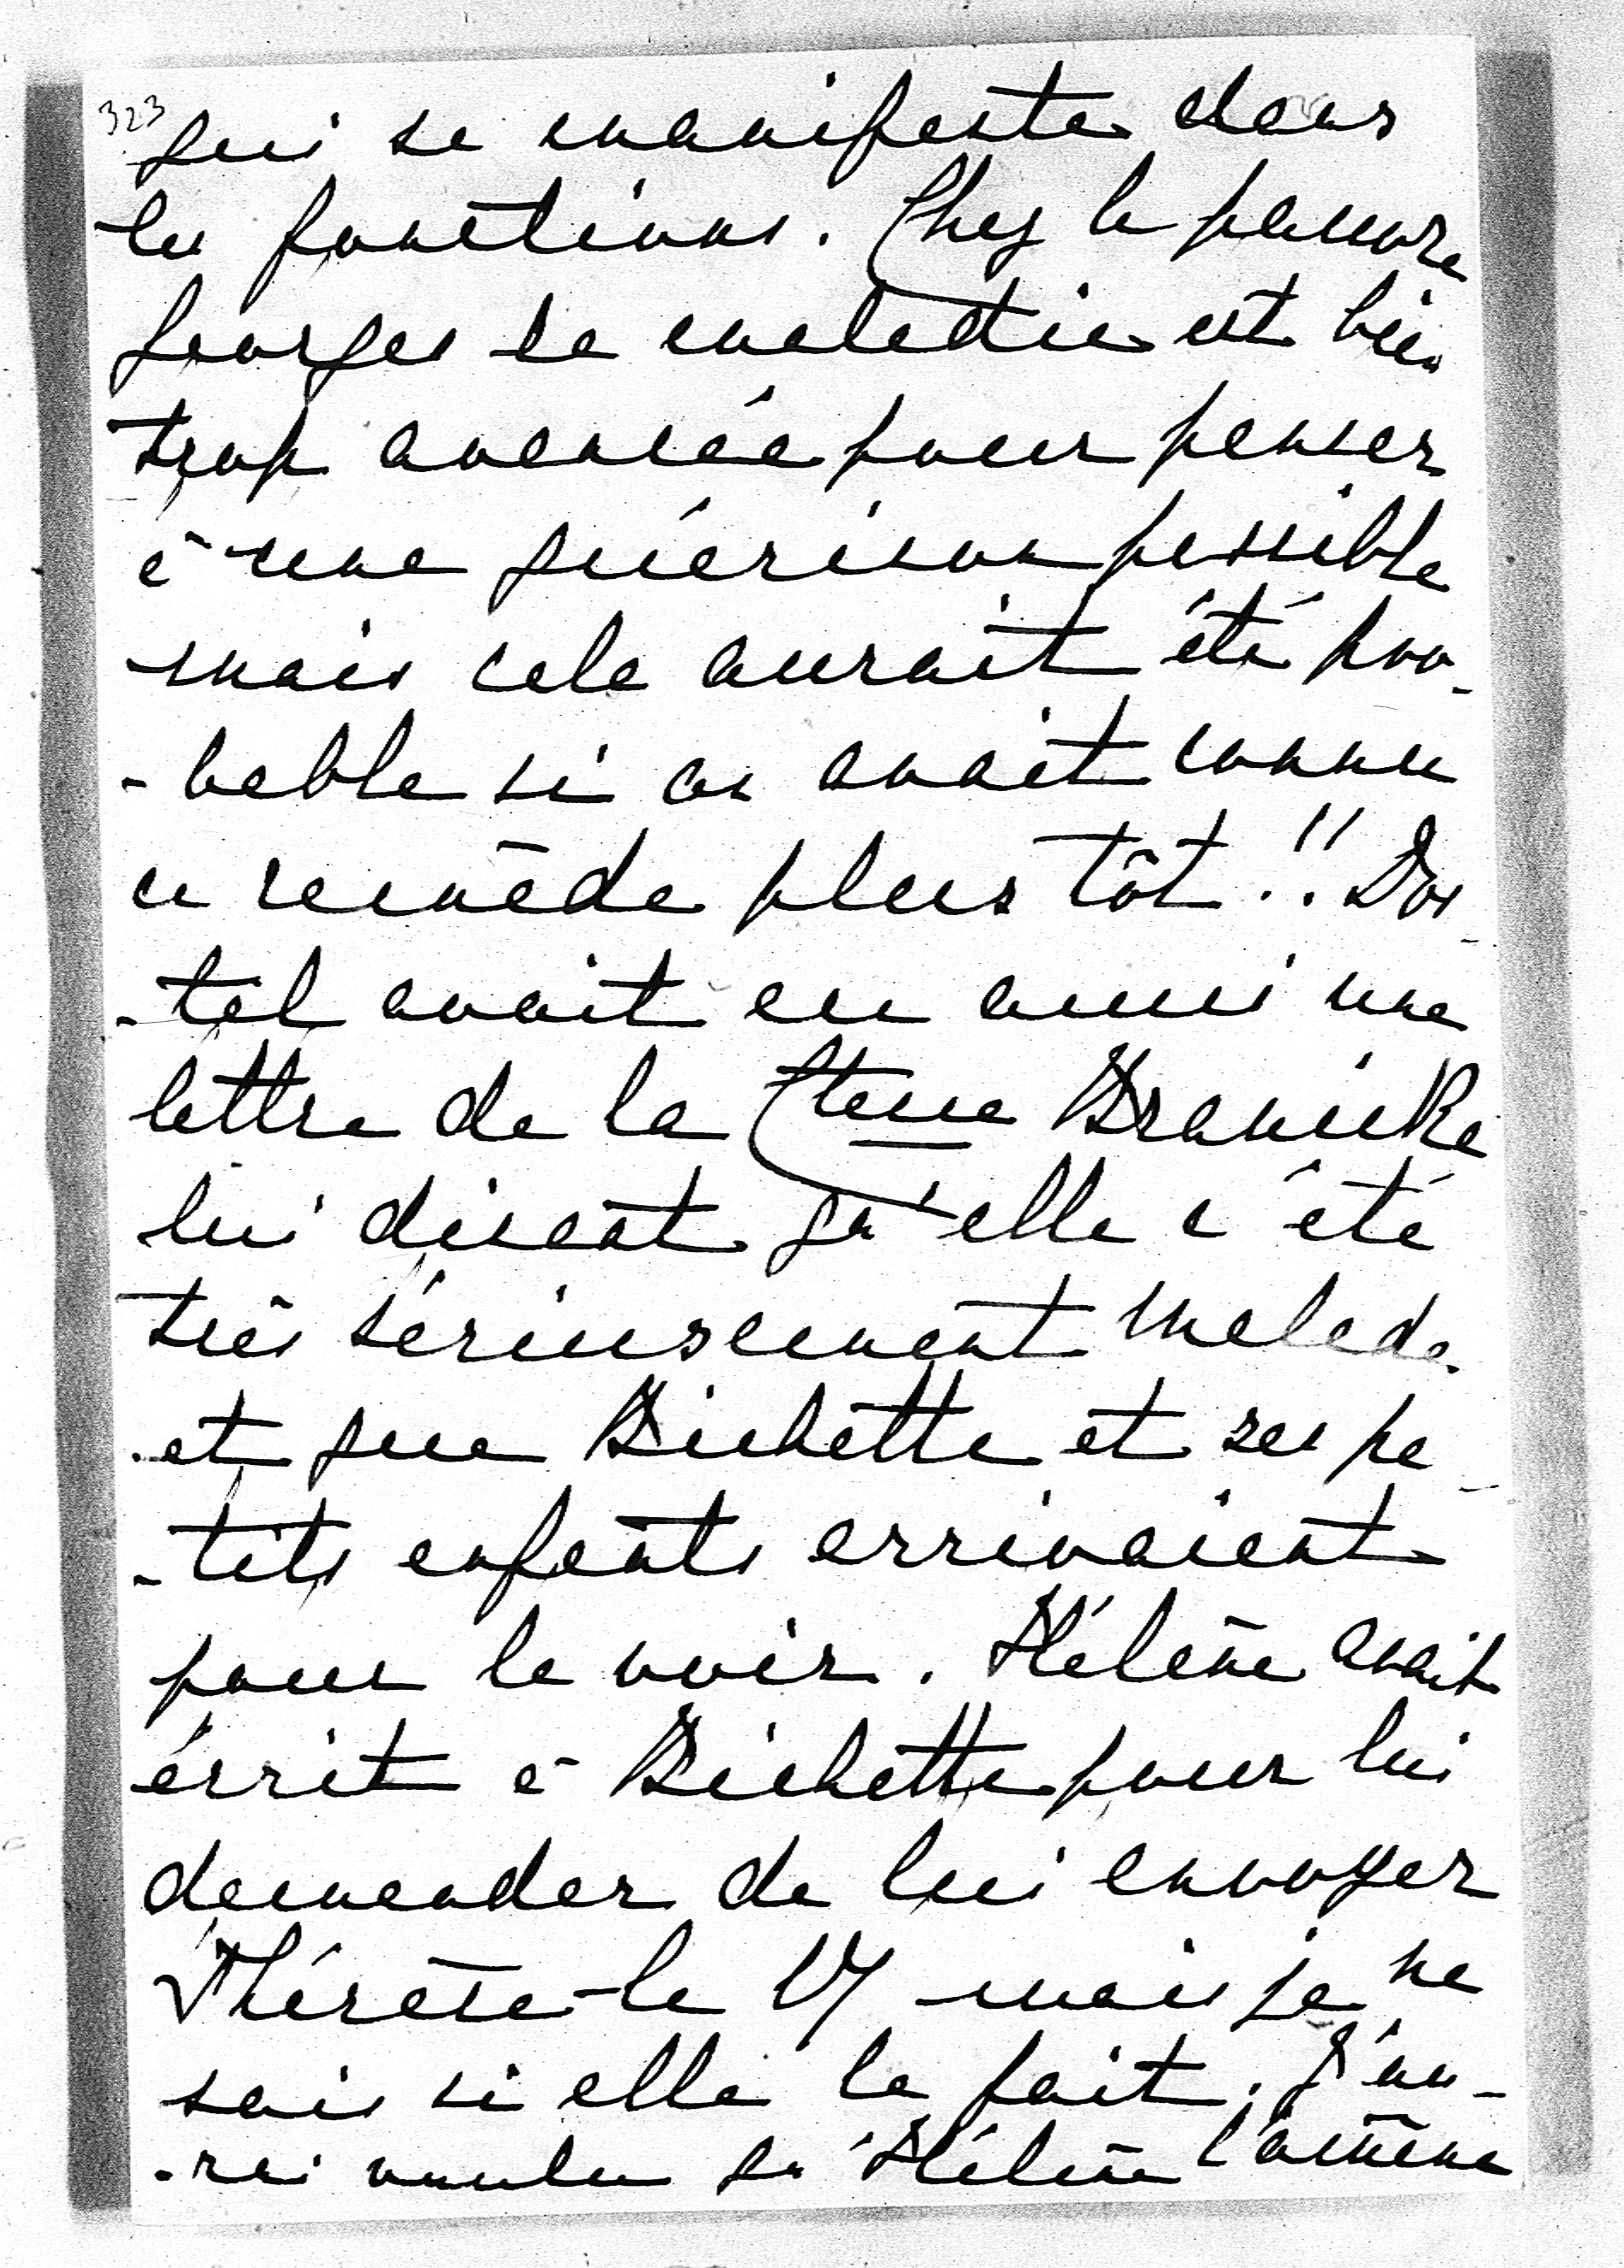 323
qui se manifeste dans
les fonctions. Chez le pauvre
Georges sa maladie est bien
trop avancée pour penser
à une guérison possible
mais cela aurait été pro-
-bable si on avait connu
ce remède plus tôt !! Dos-
-tel avait eu aussi une
lettre de la Ctesse Branicka
lui disant qu'elle a été
très sérieusement malade
et que Bichette et ses pe-
-tits enfants arrivaient
pour le voir. Hélène avait
écrit à Bichette pour lui
demander de lui envoyer
Thérèse le 17 mais je ne
sais si elle le fait. J'au-
-rai voulu qu'Hélène l'amène